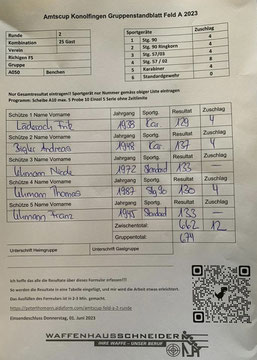 Amtscup Konolfingen Gruppenstandblatt Feld A 2023
Runde 2
Kombination 25 Gast
Verein
Richigen FS
Gruppe
A050 Benchen
Sportgeräte Zuschlag
1 Stg. 90 4
2 Stg. 90 Ringkorn 4
3 Stg. 57/03 4
4 Stg. 57 / 02 8
5 Karabiner 4
6 Standardgewehr 0
Nur Gesamtresultat eintragen!! Sportgerät nur Nummer gemäss obiger Liste eintragen
Programm: Scheibe A10 max. 5 Probe 10 Einzel 5 Serie ohne Zeitlimite
Schütze 1 Name Vorname Jahrgang Sportg. Resultat Zuschlag
Fritz 1938 Kar 129 4
Schütze 2 Name Vorname Jahrgang Sportg. Resultat Zuschlag
Andreas 1948 Kar 137 4
Schütze 3 Name Vorname Jahrgang Sportg. Resultat Zuschlag
1972 Standard 133
Schütze 4 Name Vorname Jahrgang Sportg. Resultat Zuschlag
Thomas 1987 Stg 90 130 4
Schütze 5 Name Vorname Jahrgang Sportg. Resultat Zuschlag
Franz 1945 Standard 133 —
Zwischentotal: 662 12
Gruppentotal: 674
Unterschrift Heimgruppe Unterschrift Gastgruppe
Ich hoffe das alle die Resultate über dieses Formular erfassen!!!
So werden die Resultate in eine Tabelle eingefügt, und mir wird die Arbeit etwas erleichtert.
Das Ausfüllen des Formulars ist in 2-3 Min. gemacht.
Einsendeschluss Donnerstag, 01. Juni 2023
WAFFENHAUSSCHNEIDER
IHRE WAFFE - UNSER BERUF